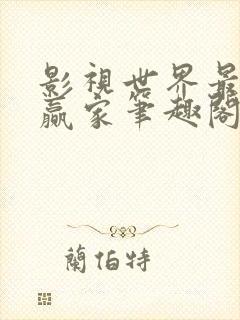 影視世界最
贏家筆趣閣
蘭伯特